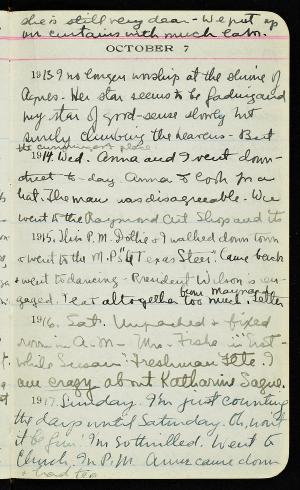 she is still very dear - We put up
our curtains with much labor.
OCTOBER 7
1913 I no longer worship at the shrine of
Agnes - Her star seems to be fading and
my star of good-sense slowly but
surely climbing the heavens - But
the cunningest place
1914. Wed. Anna and I went down-
street to-day Anna to look for a
hat. The man was disagreeable. We
went to the Raymond Art Shop and its
1915. This P.M. Dollie & I walked down town
& went to the M.P's "A Texas Steer". Came back
& went to dancing - President Wilson is en-
from Maynard
gaged. I eat altogether too much. Letter
1916. Sat. Unpacked & fixed
room in A.M - Mrs. Fiske is "not"
while Susan". Freshman Fête. I
am crazy about Katharine Sague.
1917. Sunday. I'm just counting
the days until Saturday. Oh, won't
it be fun! I'm so thrilled. Went to
Church. In P.M. Anne came down
& had tea